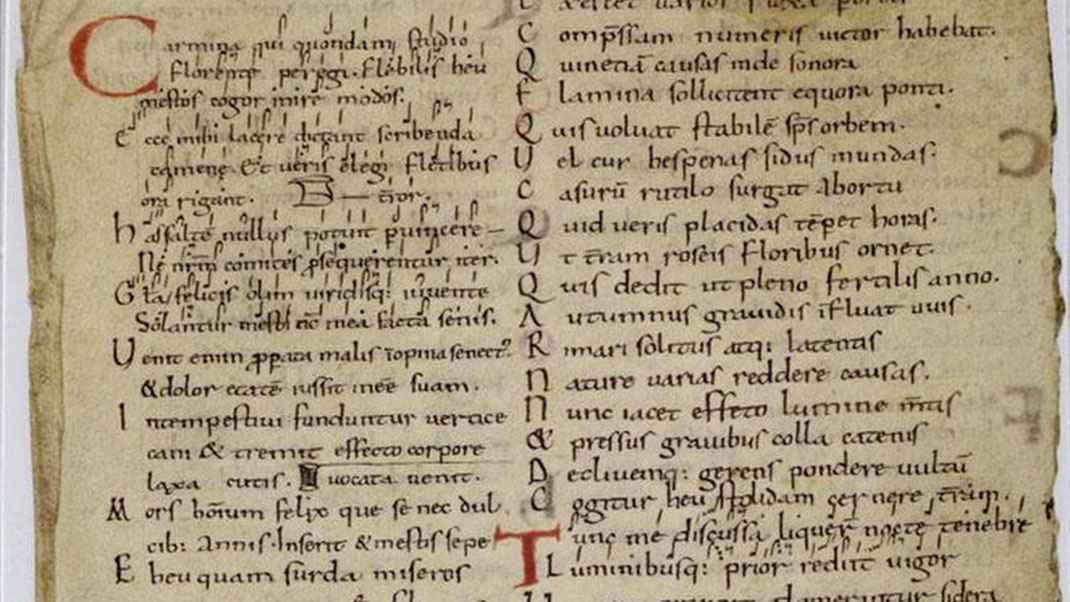 Carmina qui quondam studio
florente peregi. flebilis heu
mestos cogor inire modos.
Ecce mihi lacerę dictant scribenda
camenę. Et veris elegi fletibus
ora rigant.
has saltē nullus potuit puincere
Ne nrm̄ comites psequerentur iter.
Gła felicis olim viridisq: iuuente
Solantur mesti nc̄ mea facta senis.
Uenit enim ꝓpata malis īopina senect᷒
& dolor etatē iussit inee suam.
Intempestiui funduntur uertice
cani & tremit effecto corpore
laxa cutis. uocata uenit.
Mors hōinum felix que se nec dul
cib: Annis. Inserit & mestis sepe
Eheu quam surda miseros
Compssam numeris uictor habebat.
Quinetiā causas unde sonora
Flamina sollicitent equora ponti.
Quis uoluat stabilē sps orbem.
Uel cur hesperias sidus in undas.
Casurū rutilo surgat abortu
Quid ueris placidas tēpet horas.
Ut tr̄am roseis floribus ornet.
Quis dedit ut pleno fertilis anno.
Autumnus grauidis īfluat uuis.
Rimari solitus atq: latentis
Nature uarias reddere causas.
Nunc iacet effeto lumine m̄tis
& pressus grauibus colla catenis
Decliuemq: gerens pondere uultū
Cogitur heu stolidam cernere tr̄am.
Tunc me discussa liquer̄ nocte tenebrę
Luminibusq: prior rediit uigor